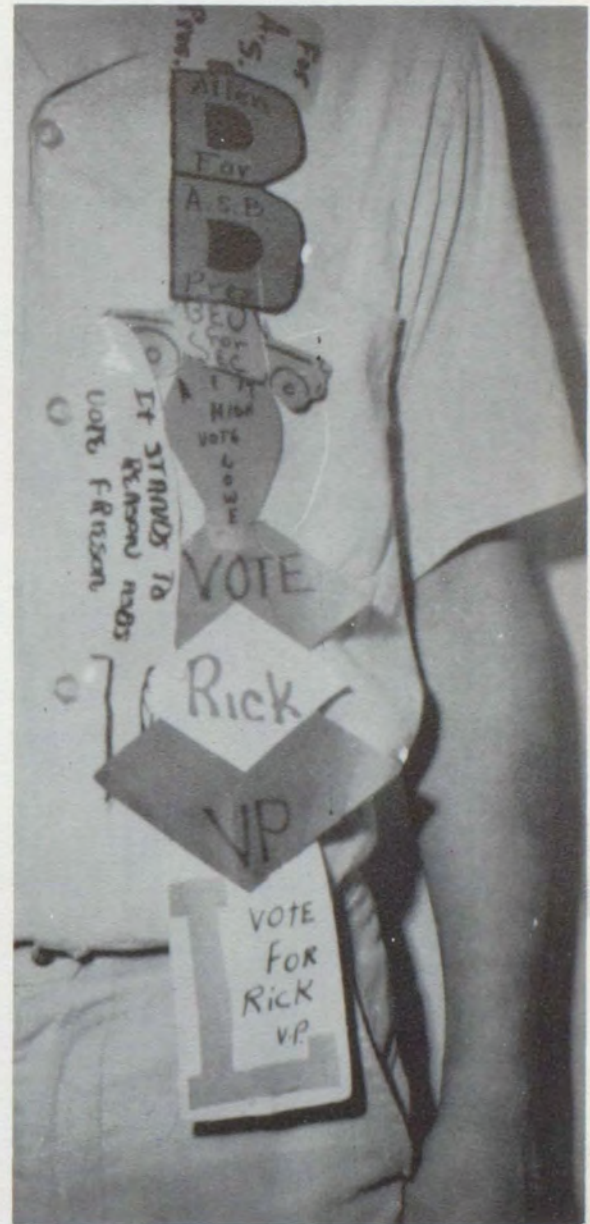 For
A.S.
Pres.
Allen
For
A.S.B.
Pres
HIGH
VOTE
LOWE
IT STANDS TO
REASON
VOTE FRIESON
VOTE
Rick
VP
VOTE
FOR
Rick
V.P.
L